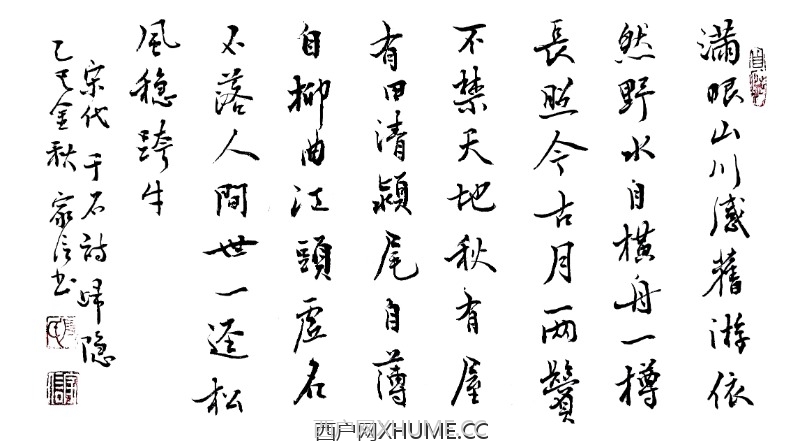 滿眼山川感舊游依
然野水自橫舟一樽
長照今古月兩鬢
不禁天地秋有屋
有田清潁尾自薄
自柳曲江頭虛名
不落人間世一逕松
風穩跨牛
宋代于石詩歸隱
乙巳金秋家信书
西户网XHUME.CC